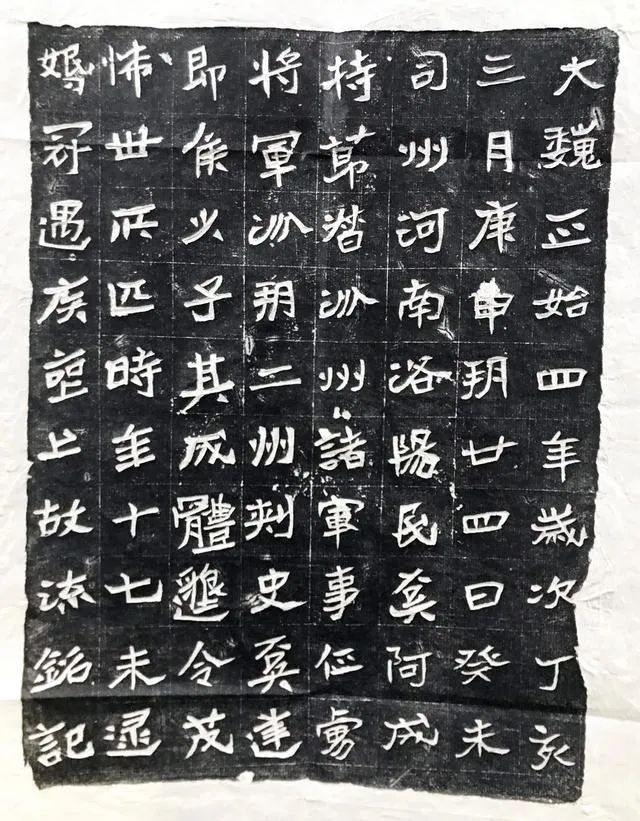 大魏正始四年歲次丁亥
三月庚申朔廿四日癸未
司州河南洛陽民奚阿成
持節督汾州諸軍事征虜
將軍汾朔二州刺史奚達
即侯以子其成體邈令茂
怖世所匹時年十七未逯
婚冠遇疾塟上故流銘記